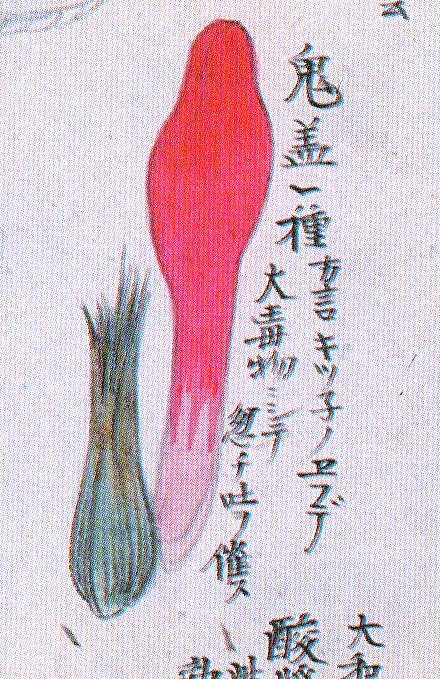 鬼盖一種
方言キツ子ノヱフデ
大毒物ニシテ
忽チ吐ヲ催ス
大和
酸